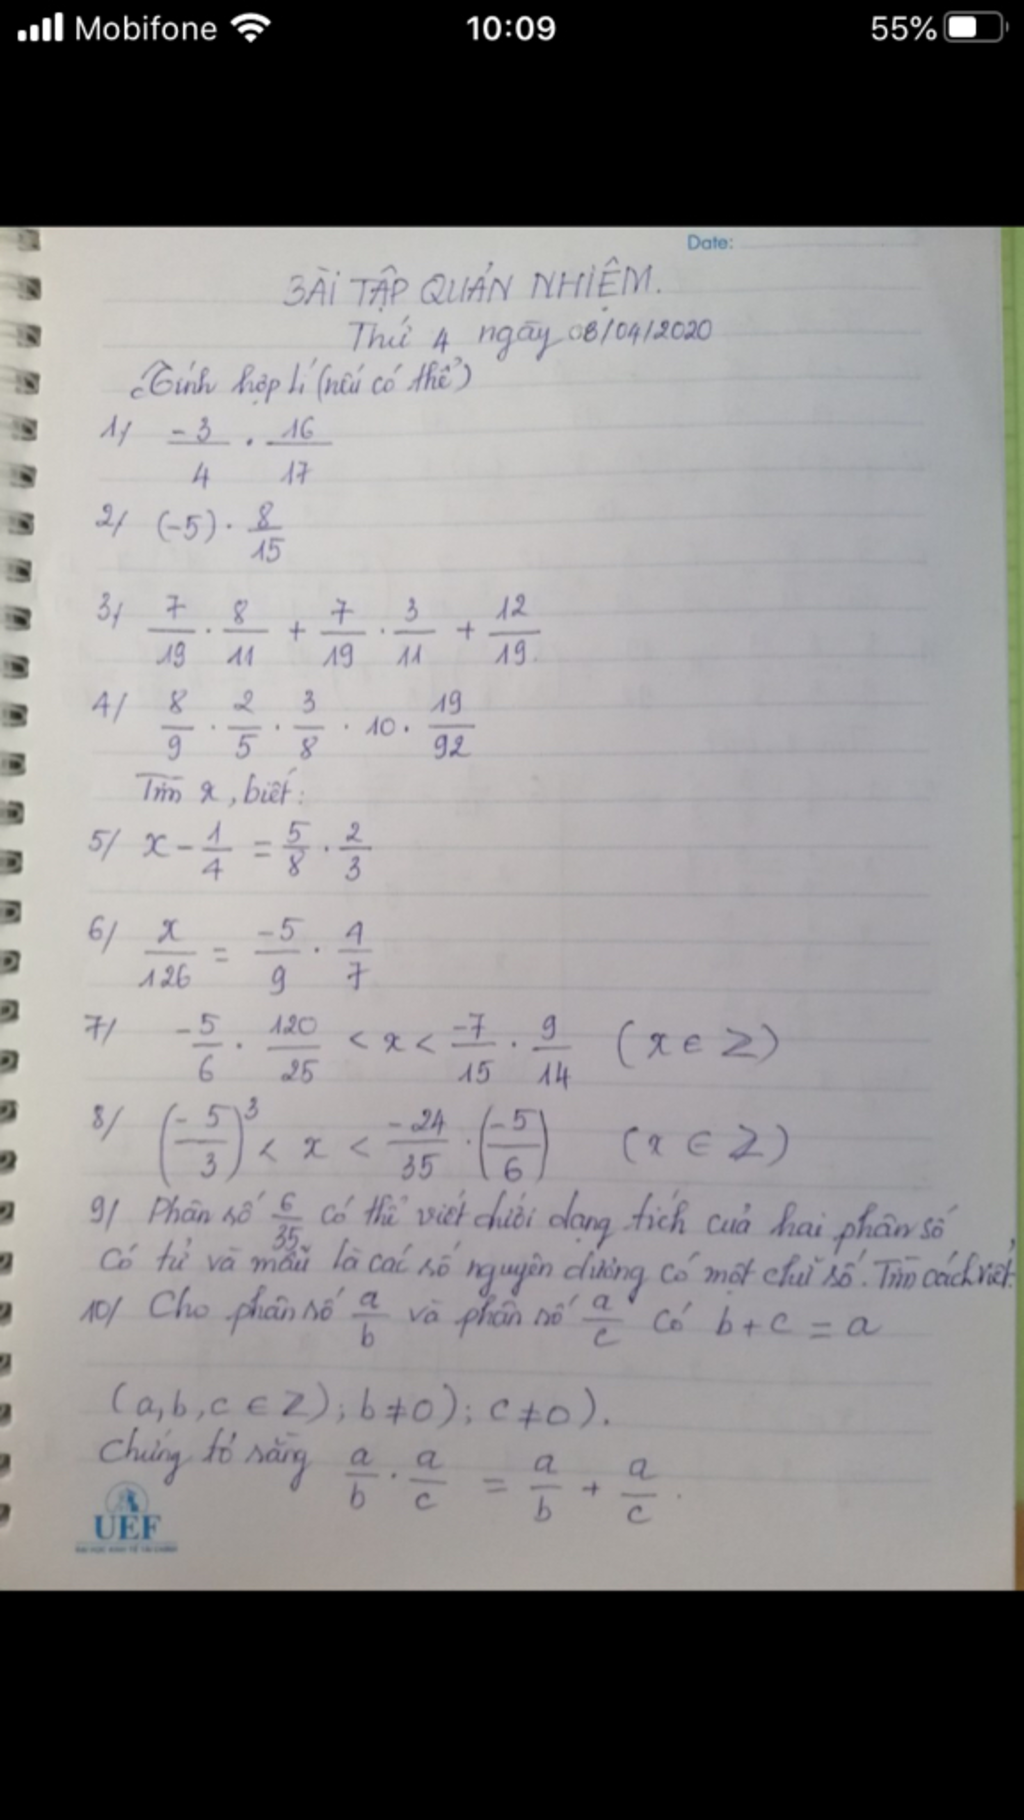 Mobifone 10:09 55%
Date:
BÀI TẬP QUẢN NHIỆM.
Thứ 4 ngày 08/04/2020
Tính hợp lí (nếu có thể)
1/ -3/4 . 16/17
2/ (-5) . 8/15
3/ 7/19 . 8/11 + 7/19 . 3/11 + 12/19.
4/ 8/9 . 2/5 . 3/8 . 10 . 19/92
Tìm x, biết:
5/ x - 1/4 = 5/8 . 2/3
6/ x/126 = -5/9 . 4/7
7/ -5/6 . 120/25 < x < -7/15 . 9/14 (x ∈ Z)
8/ (-5/3)³ < x < -24/35 . (-5/6) (x ∈ Z)
9/ Phân số 6/35 có thể viết dưới dạng tích của hai phân số
có tử và mẫu là các số nguyên dương có một chữ số. Tìm cách viết.
10/ Cho phân số a/b và phân số a/c có b + c = a
(a, b, c ∈ Z); b ≠ 0); c ≠ 0).
Chứng tỏ rằng a/b . a/c = a/b + a/c.
UEF